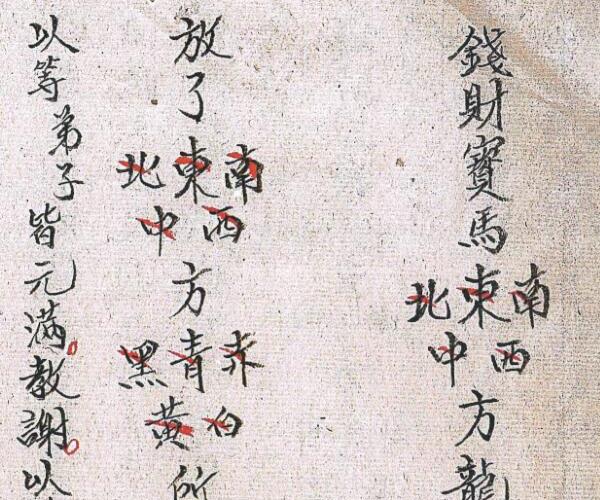 錢財寳馬東南西北中方龍
放了東南西北中方青赤白黑黃所
以等弟子皆元滿教謝以